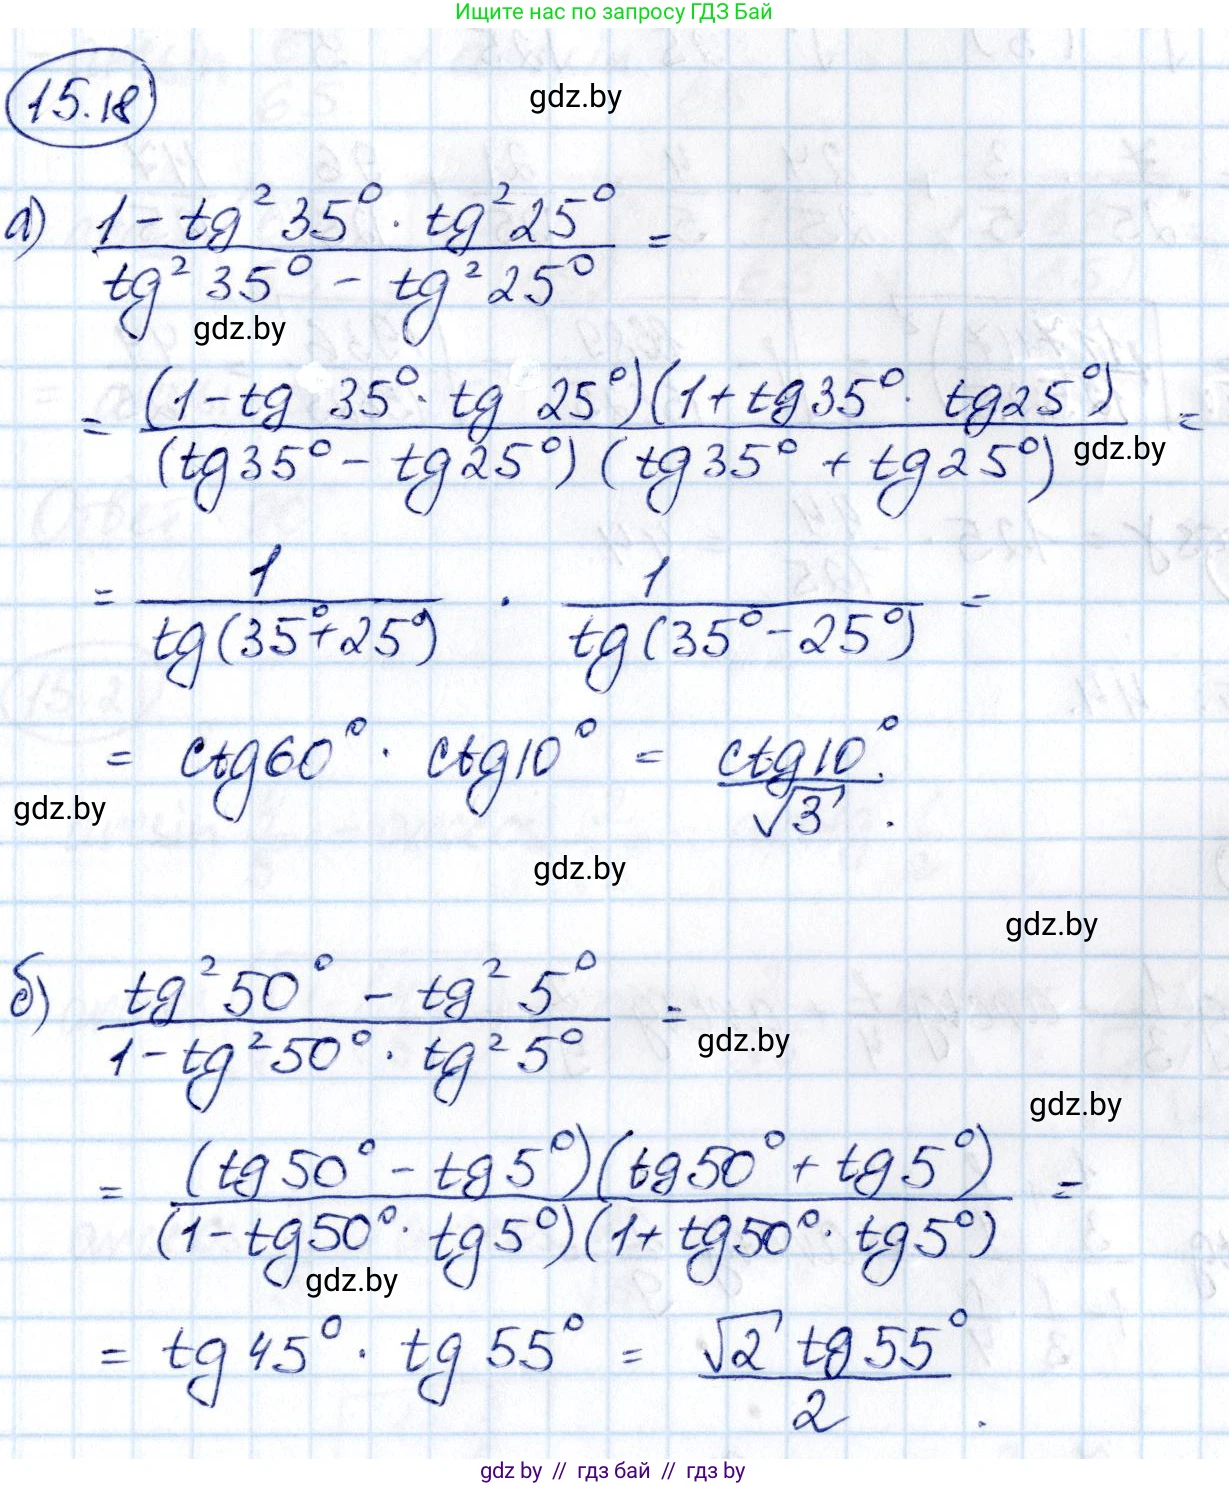 Ищите нас по запросу ГДЗ Бай
15.18
gdz.by
а) (1 - tg²35° · tg²25°) / (tg²35° - tg²25°) =
gdz.by
= ((1 - tg 35° · tg 25°)(1 + tg35° · tg25°)) / ((tg35° - tg25°)(tg35° + tg25°)) =
gdz.by
= 1 / tg(35°+25°) · 1 / tg(35°-25°) =
= ctg60° · ctg10° = ctg10° / √3 .
gdz.by
gdz.by
gdz.by
б) (tg²50° - tg²5°) / (1 - tg²50° · tg²5°) =
gdz.by
gdz.by
= ((tg50° - tg5°)(tg50° + tg5°)) / ((1 - tg50° · tg5°)(1 + tg50° · tg5°)) =
gdz.by
= tg45° · tg55° = √2 tg55° / 2 .
gdz.by // гдз бай // гдз by